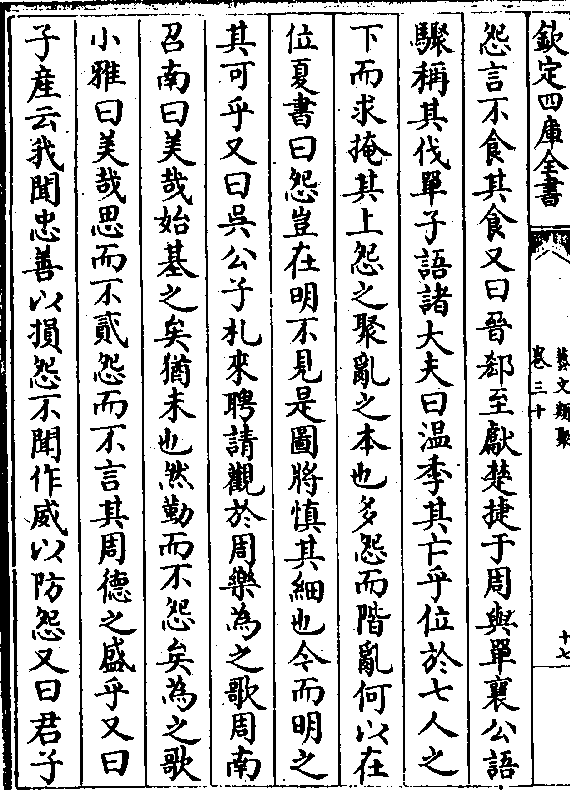 欽定四庫全書
藝文類聚
卷三十
十七
怨言不食其食又曰晉郄至獻楚捷于周與單襄公語
驟稱其伐單子語諸大夫曰温季其亡乎位於七人之
下而求掩其上怨之聚亂之本也多怨而階亂何以在
位夏書曰怨豈在明不見是圖將慎其細也今而明之
其可乎又曰吳公子札來聘請觀於周樂為之歌周南
召南曰美哉始基之矣猶未也然勤而不怨矣為之歌
小雅曰美哉思而不貳怨而不言其周德之盛乎又曰
子產云我聞忠善以損怨不聞作威以防怨又曰君子